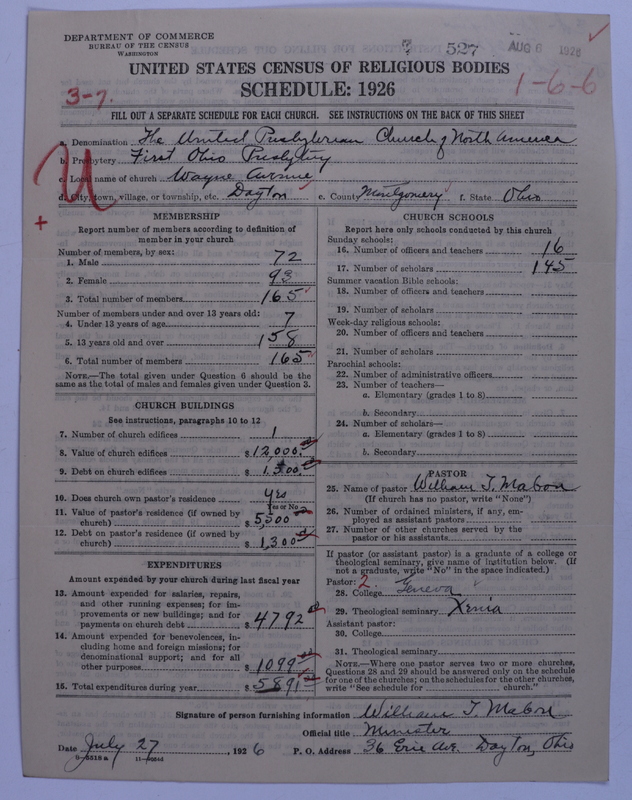 DEPARTMENT OF COMMERCE
BUREAU OF THE CENSUS
WASHINGTON
527
AUG 6 1926
1-6-6
UNITED STATES CENSUS OF RELIGIOUS BODIES
SCHEDULE: 1926
3-7.
FILL OUT A SEPARATE SCHEDULE FOR EACH CHURCH. SEE INSTRUCTIONS ON THE BACK OF THIS SHEET
U
+
a. Denomination The United Presbyterian Church of North America
b. Presbytery First Ohio Presbytery
c. Local name of church Wayne Avenue
d. City, town, village, or township, etc. Dayton e. County Montgomery f. State Ohio
MEMBERSHIP
Report number of members according to definition of
member in your church
Number of members, by sex:
1. Male 72
2. Female 93
3. Total number of members 165
Number of members under and over 13 years old:
4. Under 13 years of age 7
5. 13 years old and over 158
6. Total number of members 165
NOTE.—The total given under Question 6 should be the
same as the total of males and females given under Question 3.
CHURCH BUILDINGS
See instructions, paragraphs 10 to 12
7. Number of church edifices 1
8. Value of church edifices $ 12,000.
9. Debt on church edifices $ 1,500.
10. Does church own pastor's residence yes
Yes or No
11. Value of pastor's residence (if owned by
church) $ 5,500
12. Debt on pastor's residence (if owned by
church) $ 1,300
EXPENDITURES
Amount expended by your church during last fiscal year
13. Amount expended for salaries, repairs,
and other running expenses; for im-
provements or new buildings; and for
payments on church debt $ 4792
14. Amount expended for benevolences, in-
cluding home and foreign missions; for
denominational support; and for all
other purposes $ 1099
15. Total expenditures during year $ 5891
CHURCH SCHOOLS
Report here only schools conducted by this church
Sunday schools:
16. Number of officers and teachers 16
17. Number of scholars 145
Summer vacation Bible schools:
18. Number of officers and teachers
19. Number of scholars
Week-day religious schools:
20. Number of officers and teachers
21. Number of scholars
Parochial schools:
22. Number of administrative officers
23. Number of teachers—
a. Elementary (grades 1 to 8)
b. Secondary
24. Number of scholars—
a. Elementary (grades 1 to 8)
b. Secondary
PASTOR
25. Name of pastor William T. Mabon
(If church has no pastor, write "None")
26. Number of ordained ministers, if any, em-
ployed as assistant pastors
27. Number of other churches served by the
pastor or his assistants
If pastor (or assistant pastor) is a graduate of a college or
theological seminary, give name of institution below. (If
not a graduate, write "No" in the space indicated.)
Pastor: 2
28. College Geneva
29. Theological seminary Xenia
Assistant pastor:
30. College
31. Theological seminary
NOTE.—Where one pastor serves two or more churches,
Questions 28 and 29 should be answered only on the schedule
for one of the churches; on the schedules for the other churches,
write "See schedule for church."
Signature of person furnishing information William T Mabon
Official title Minister
Date July 27, 1926 P. O. Address 36 Erie Ave. Dayton, Ohio